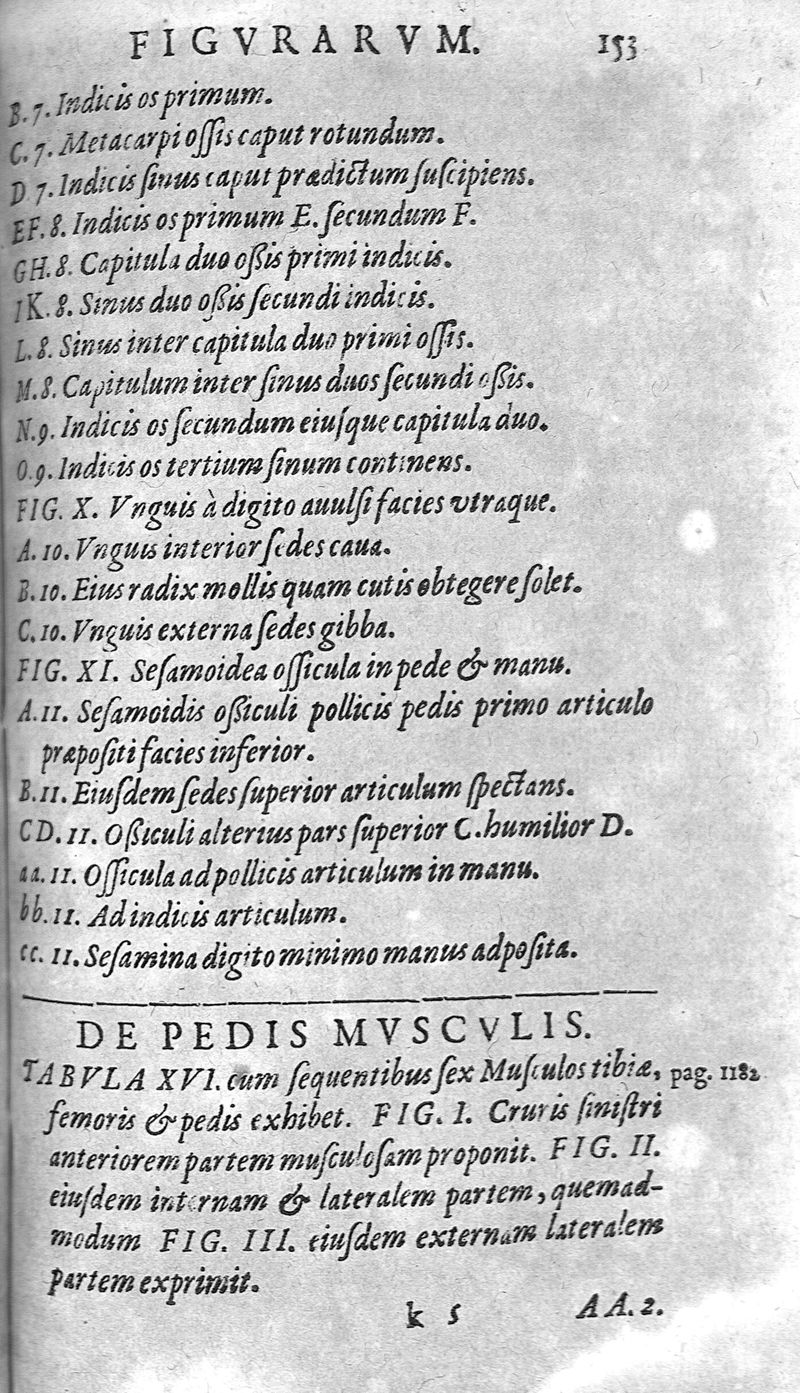 FIGVRARVM. 153
B. 7. Indicis os primum.
C. 7. Metacarpi oſſis caput rotundum.
D 7. Indicis ſinus caput prædictum ſuſcipiens.
EF. 8. Indicis os primum E. ſecundum F.
GH. 8. Capitula duo oßis primi indicis.
IK. 8. Sinus duo oßis ſecundi indicis.
L. 8. Sinus inter capitula duo primi oſſis.
M. 8. Capitulum inter ſinus duos ſecundi oßis.
N. 9. Indicis os ſecundum eiuſque capitula duo.
O. 9. Indicis os tertium ſinum continens.
FIG. X. Vnguis à digito auulſi facies vtraque.
A. 10. Vnguis interior ſedes caua.
B. 10. Eius radix mollis quam cutis obtegere ſolet.
C. 10. Vnguis externa ſedes gibba.
FIG. XI. Seſamoidea oſſicula in pede & manu.
A. 11. Seſamoidis oßiculi pollicis pedis primo articulo
præpoſiti facies inferior.
B. 11. Eiuſdem ſedes ſuperior articulum ſpectans.
CD. 11. Oßiculi alterius pars ſuperior C. humilior D.
aa. 11. Oſſicula ad pollicis articulum in manu.
bb. 11. Ad indicis articulum.
cc. 11. Seſamina digito minimo manus adpoſita.
DE PEDIS MVSCVLIS.
TABVLA XVI. cum ſequentibus ſex Muſculos tibiæ, pag. 1182
femoris & pedis exhibet. FIG. I. Cruris ſiniſtri
anteriorem partem muſculoſam proponit. FIG. II.
eiuſdem internam & lateralem partem, quemad-
modum FIG. III. eiuſdem externam lateralem
partem exprimit.
k 5 AA. 2.